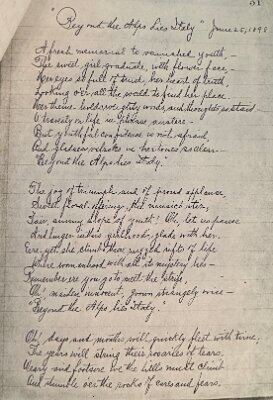 51
"Beyond the Alps Lies Italy" June 25, 1898
A fresh memorial to vanished youth,—
The sweet girl graduate, with flower face,—
Her eyes so full of trust, her heart of truth,
Looking o'er all the world to find her place
her theme, bold words, and thoughts
O'
But youthful confidence is not afraid,
And gladsome in her tones so clear—
"Beyond the Alps lies Italy."
The joy of triumph and of proud applause
Sweet floral offerings, that
Fair, sunny slope of youth! Oh, let us pause
And linger in this girlhood, glade with her.
Ere yet she climb those rugged of life
Where womanhood with all its mystery lies—
Remember ere you go to meet the strife,
Oh! maiden innocent, grown wise—
"Beyond the Alps, lies Italy."
Oh! days and months will quickly fleet with time,
The years will string their rosaries of tears,
Weary and footsore the hills must climb
And stumble o'er the rocks of cares and fears.